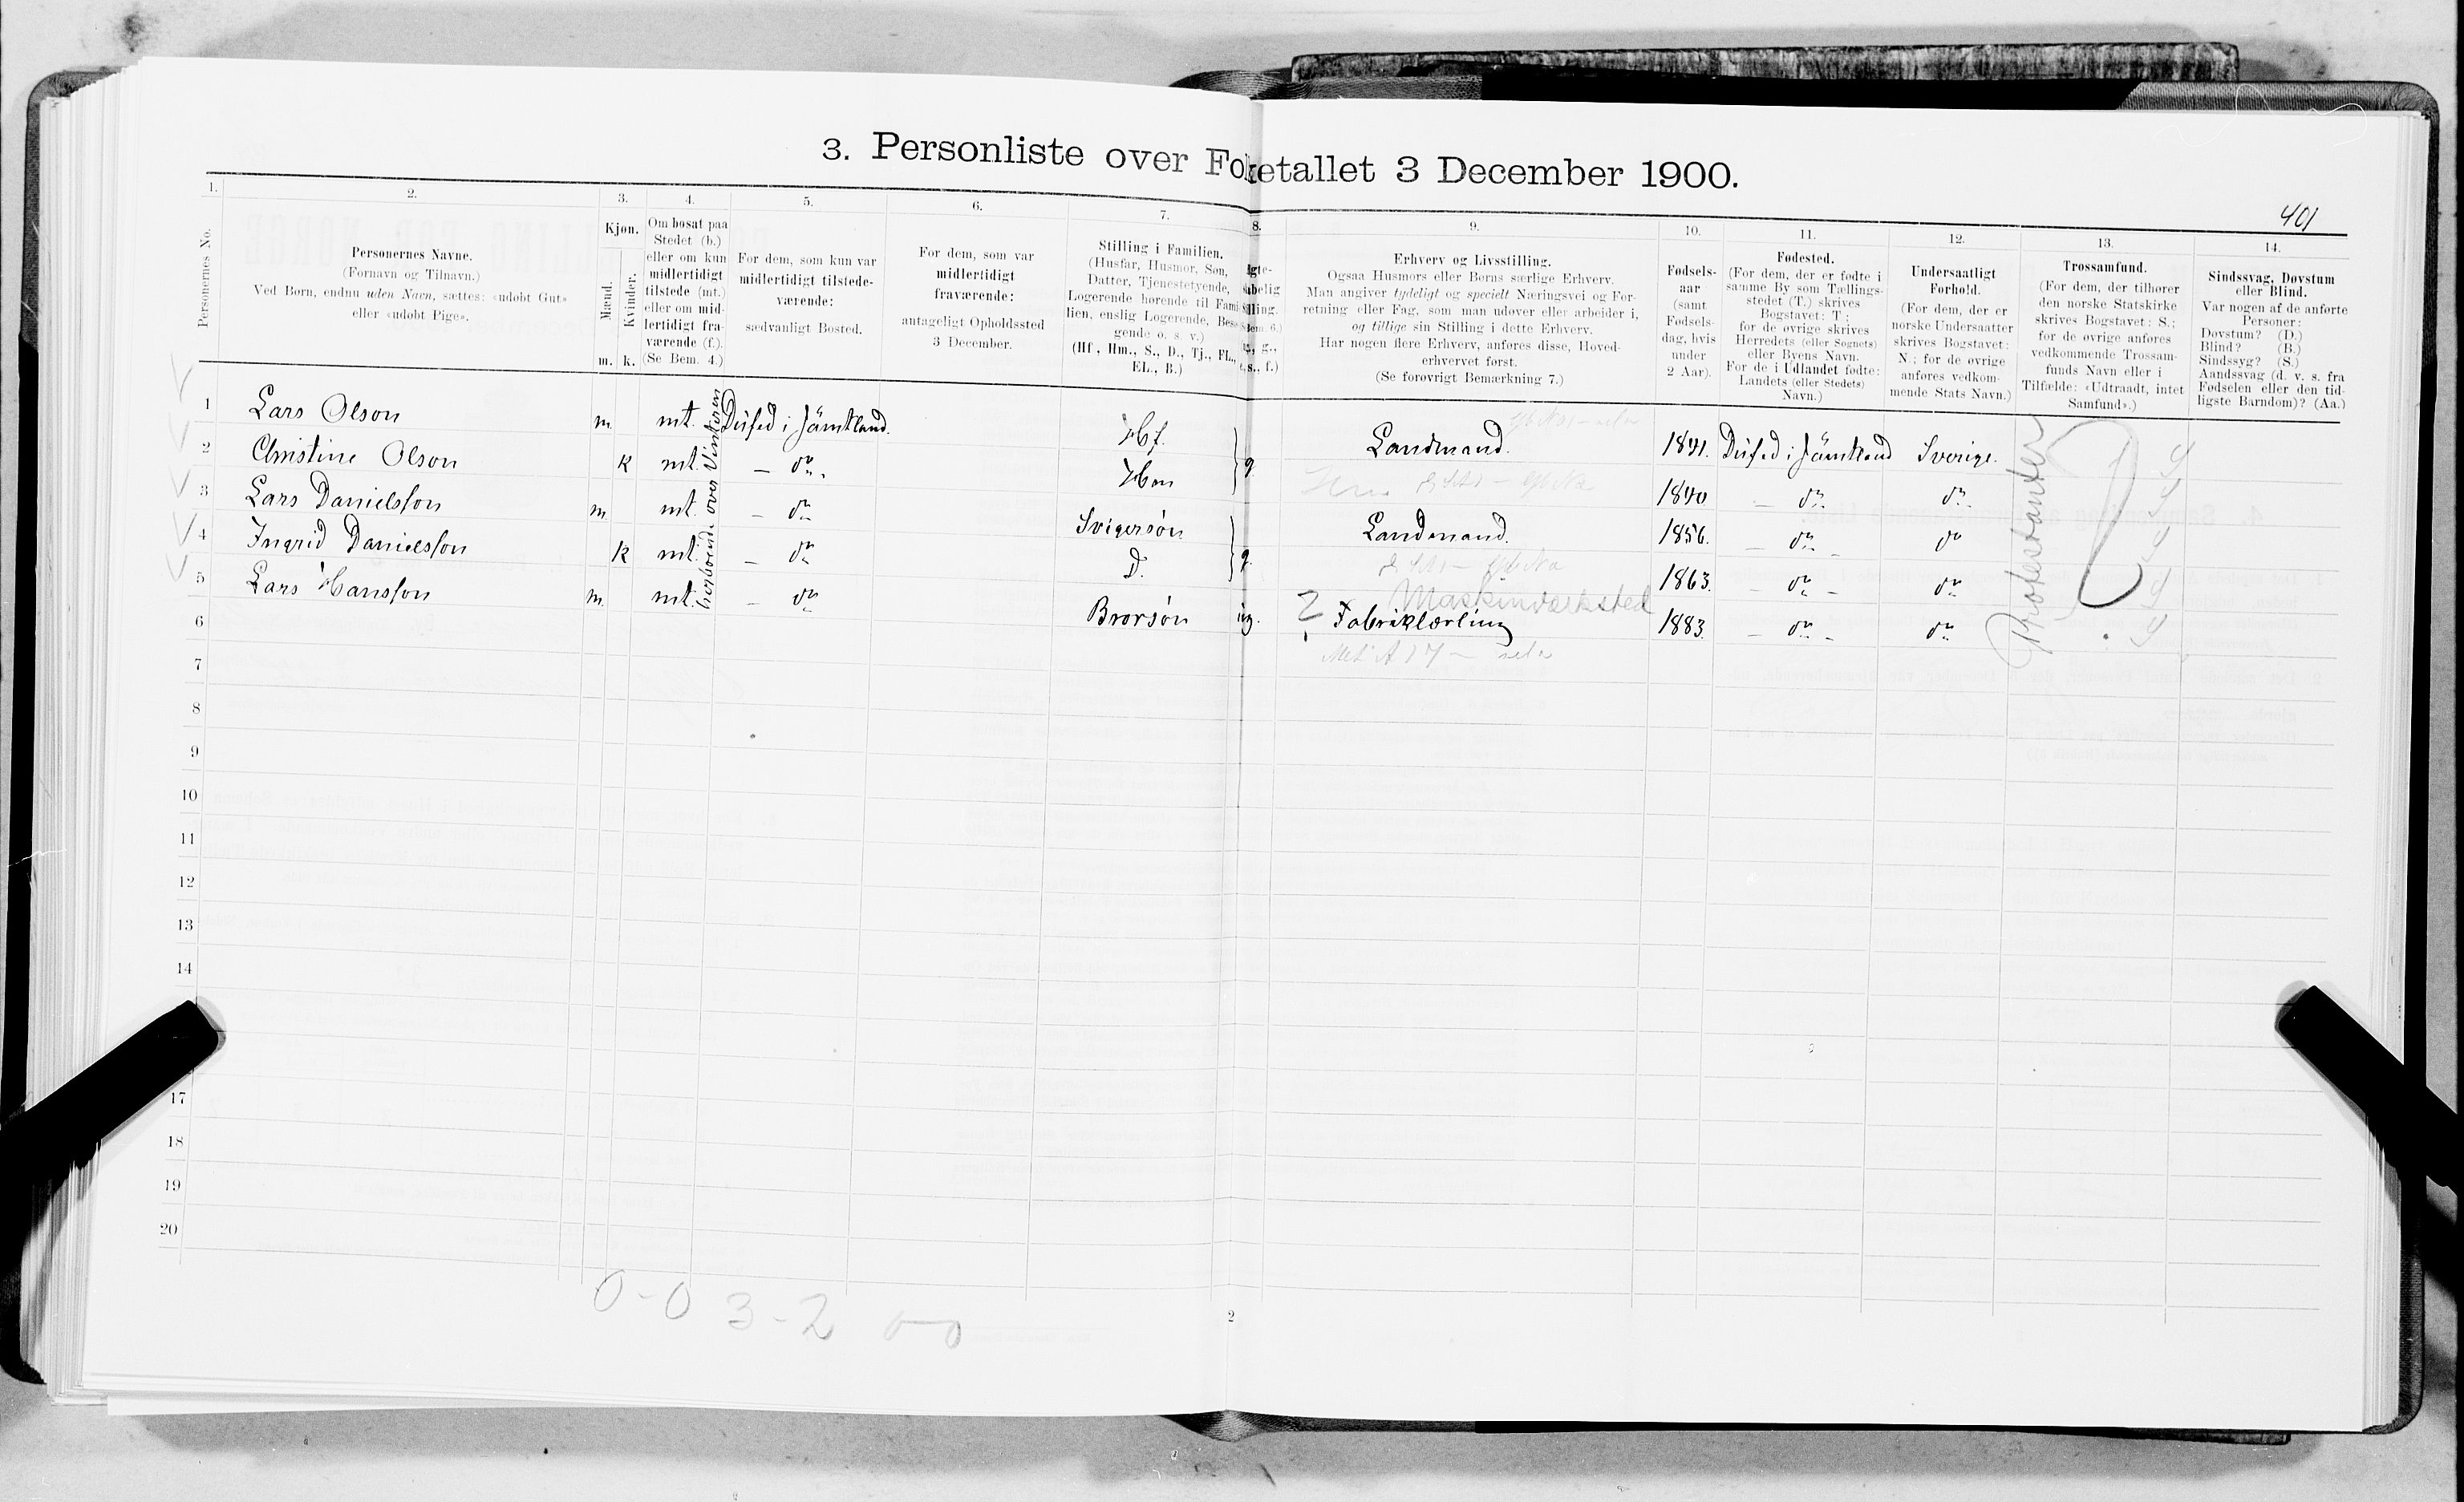 3. Personliste over Folketallet 3 December 1900.
401
1. 2. 3. 4. 5. 6. 7. 8. 9. 10. 11. 12. 13. 14.
Personernes No.
Personernes Navne.
(Fornavn og Tilnavn.)
Ved Børn, endnu uden Navn, sættes: «udøbt Gut»
eller «udøbt Pige».
Kjøn.
Mænd.
Kvinder.
m. k.
Om bosat paa
Stedet (b.)
eller om kun
midlertidigt
tilstede (mt.)
eller om mid-
lertidigt fra-
værende (f.).
(Se Bem. 4.)
For dem, som kun var
midlertidigt tilstede-
værende:
sædvanligt Bosted.
For dem, som var
midlertidigt
fraværende:
antageligt Opholdssted
3 December.
Stilling i Familien.
(Husfar, Husmor, Søn,
Datter, Tjenestetyende,
Logerende hørende til Fami-
lien, enslig Logerende, Besø-
gende o. s. v.)
(Hf., Hm., S., D., Tj., FL.,
EL., B.)
Erhverv og Livsstilling.
Ogsaa Husmors eller Børns særlige Erhverv.
Man angiver tydeligt og specielt Næringsvei og For-
retning eller Fag, som man udøver eller arbeider i,
og tillige sin Stilling i dette Erhverv.
Har nogen flere Erhverv, anføres disse, Hoved-
erhvervet først.
(Se forøvrigt Bemærkning 7.)
Fødsels-
aar
(samt
Fødsels-
dag, hvis
under
2 Aar).
Fødested.
(For dem, der er fødte i
samme By som Tællings-
stedet (T.) skrives
Bogstavet: T;
for de øvrige skrives
Herredets (eller Sognets)
eller Byens Navn.
For de i Udlandet fødte:
Landets (eller Stedets)
Navn.)
Undersaatligt
Forhold.
(For dem, der er
norske Undersaatter
skrives Bogstavet:
N.; for de øvrige
anføres vedkom-
mende Stats Navn.)
Trossamfund.
(For dem, der tilhører
den norske Statskirke
skrives Bogstavet: S.;
for de øvrige anføres
vedkommende Trossam-
funds Navn eller i
Tilfælde: «Udtraadt, intet
Samfund».)
Sindssvag, Døvstum
eller Blind.
Var nogen af de anførte
Personer:
Døvstum? (D.)
Blind? (B.)
Sindssyg? (S.)
Aandssvag (d. v. s. fra
Fødselen eller den tid-
ligste Barndom)? (Aa.)
1 Lars Olson m. mt. i Jämtland. Hf. Landmand. 1841. i Jämtland Sverige.
2 Christine Olson k mt. - do. Hm g. 1840 - do do
3 Lars Danielsson m. mt. - do Svigersøn Landmand. 1856. - do - do
4 Ingrid Danielsson k mt. - do D. g. 1863. - do - do
Maskinværksted
5 Lars Hansson m. mt. - do Brorsøn ug. Fabriklærling 1883. - do - do
over Vinteren
Protestanter
6
7
8
9
10
11
12
13
14
17
18
19
20
0-0 3-2 0-0
2